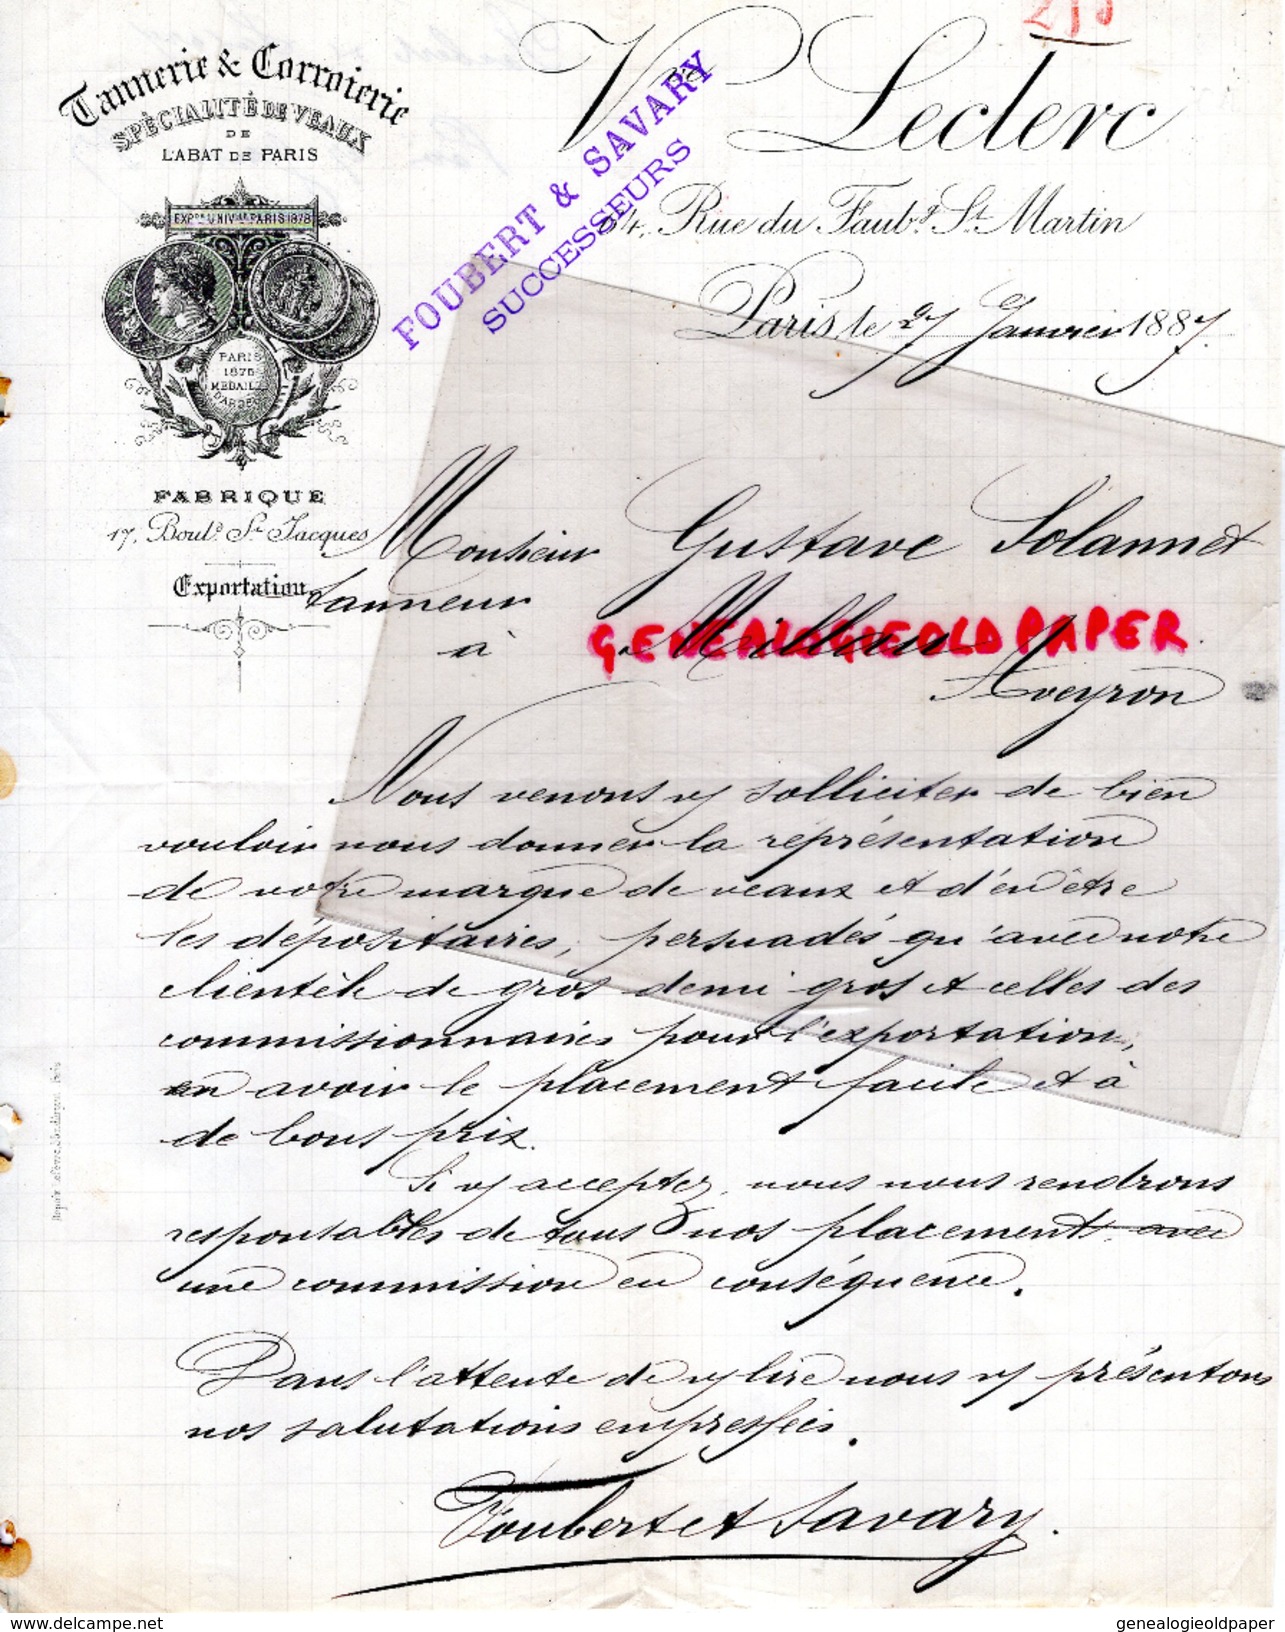 Tannerie & Corroierie
SPÉCIALITÉ DE VEAUX
DE
L'ABAT DE PARIS
EXPON UNIVLLE PARIS 1878
PARIS
1875
MEDAILLE
D'ARGENT
FABRIQUE
17, Boul.d St Jacques
Exportation
Vve Leclerc
84, Rue du Faubg St Martin
FOUBERT & SAVARY
SUCCESSEURS
Paris, le 27 Janvier 1887.
Monsieur Gustave Solannet
tanneur
à Millau
GENEALOGIEOLD PAPER
Aveyron
Nous venons vs solliciter de bien
vouloir nous donner la représentation
de votre marque de veaux et d'en être
les dépositaires, persuadés qu'avec notre
clientèle de gros demi gros et celles des
commissionnaires pour l'exportation,
en avoir le placement facile et à
de bons prix.
Si vs acceptez, nous nous rendrons
responsables de tous nos placements avec
une commission en conséquence.
Dans l'attente de vs lire nous vs présentons
nos salutations empressées.
Foubert et Savary.
www.delcampe.net
genealogieoldpaper